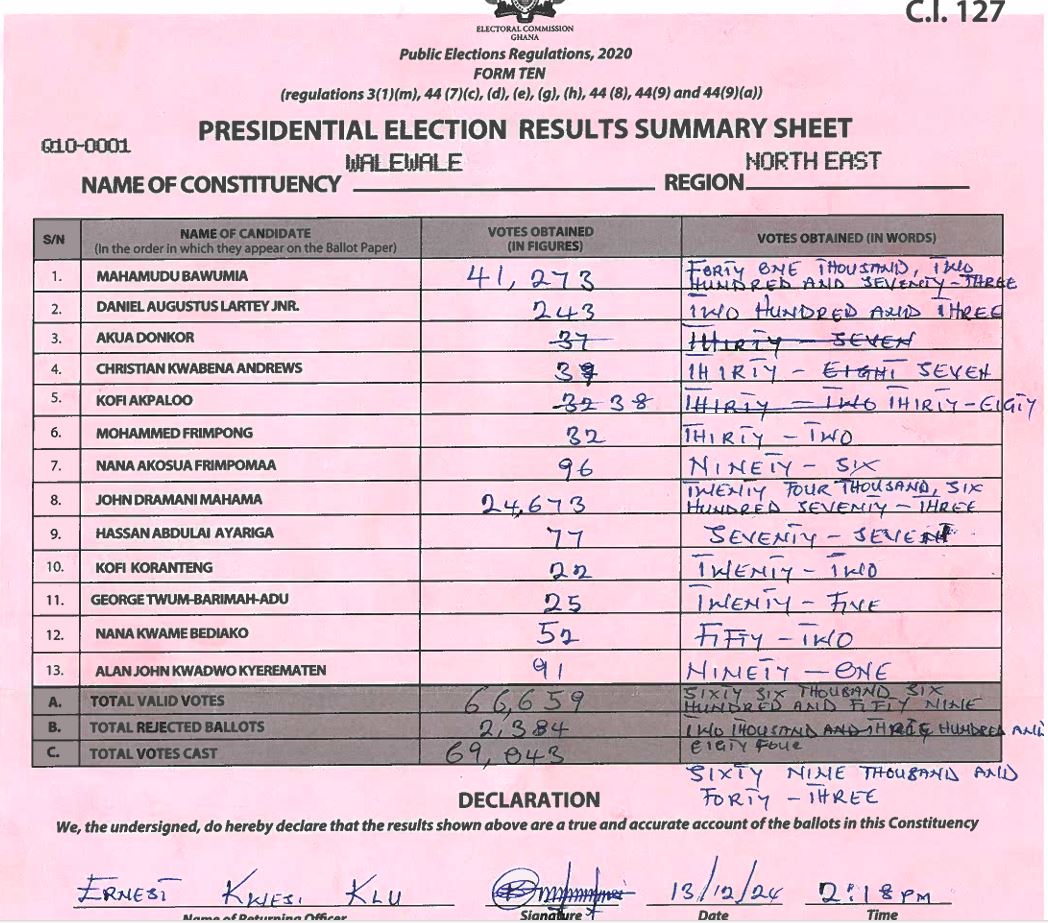 C.I. 127
ELECTORAL COMMISSION
GHANA
Public Elections Regulations, 2020
FORM TEN
(regulations 3(1)(m), 44 (7)(c), (d), (e), (g), (h), 44 (8), 44(9) and 44(9)(a))
PRESIDENTIAL ELECTION RESULTS SUMMARY SHEET
Q10-0001
NAME OF CONSTITUENCY WALEWALE REGION NORTH EAST
S/N NAME OF CANDIDATE (In the order in which they appear on the Ballot Paper) VOTES OBTAINED (IN FIGURES) VOTES OBTAINED (IN WORDS)
1. MAHAMUDU BAWUMIA 41,273 FORTY ONE THOUSAND, TWO HUNDRED AND SEVENTY-THREE
2. DANIEL AUGUSTUS LARTEY JNR. 243 TWO HUNDRED AND THREE
3. AKUA DONKOR 37 THIRTY - SEVEN
4. CHRISTIAN KWABENA ANDREWS 37 THIRTY - EIGHT SEVEN
5. KOFI AKPALOO 32 38 THIRTY - TWO THIRTY-EIGTY
6. MOHAMMED FRIMPONG 32 THIRTY - TWO
7. NANA AKOSUA FRIMPOMAA 96 NINETY - SIX
8. JOHN DRAMANI MAHAMA 24,673 TWENTY FOUR THOUSAND, SIX HUNDRED SEVENTY - THREE
9. HASSAN ABDULAI AYARIGA 77 SEVENTY - SEVEN
10. KOFI KORANTENG 22 TWENTY - TWO
11. GEORGE TWUM-BARIMAH-ADU 25 TWENTY - FIVE
12. NANA KWAME BEDIAKO 52 FIFTY - TWO
13. ALAN JOHN KWADWO KYEREMATEN 91 NINETY - ONE
A. TOTAL VALID VOTES 66,659 SIXTY SIX THOUSAND SIX HUNDRED AND FIFTY NINE
B. TOTAL REJECTED BALLOTS 2,384 TWO THOUSAND AND THREE HUNDRED AND EIGTY FOUR
C. TOTAL VOTES CAST 69,043 SIXTY NINE THOUSAND AND FORTY - THREE
DECLARATION
We, the undersigned, do hereby declare that the results shown above are a true and accurate account of the ballots in this Constituency
ERNEST KWESI KLU 13/12/24 2:18 PM
Name of Returning Officer Signature Date Time